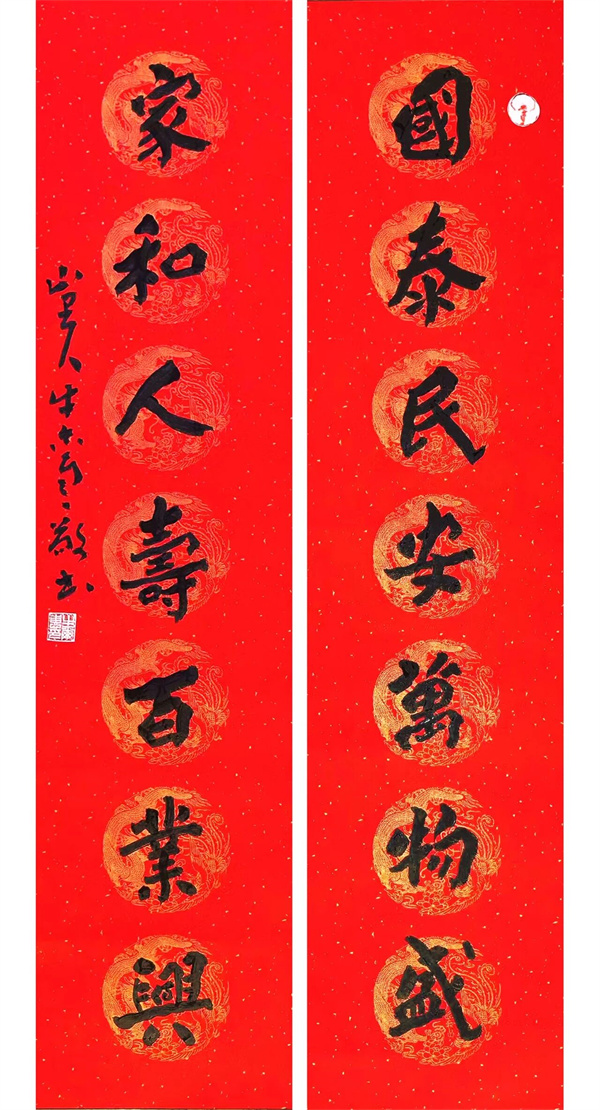 國泰民安萬物盛
家和人壽百業興